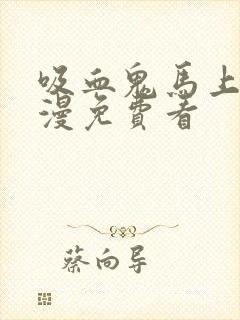 吸血鬼馬上
漫免費看
蔡向导